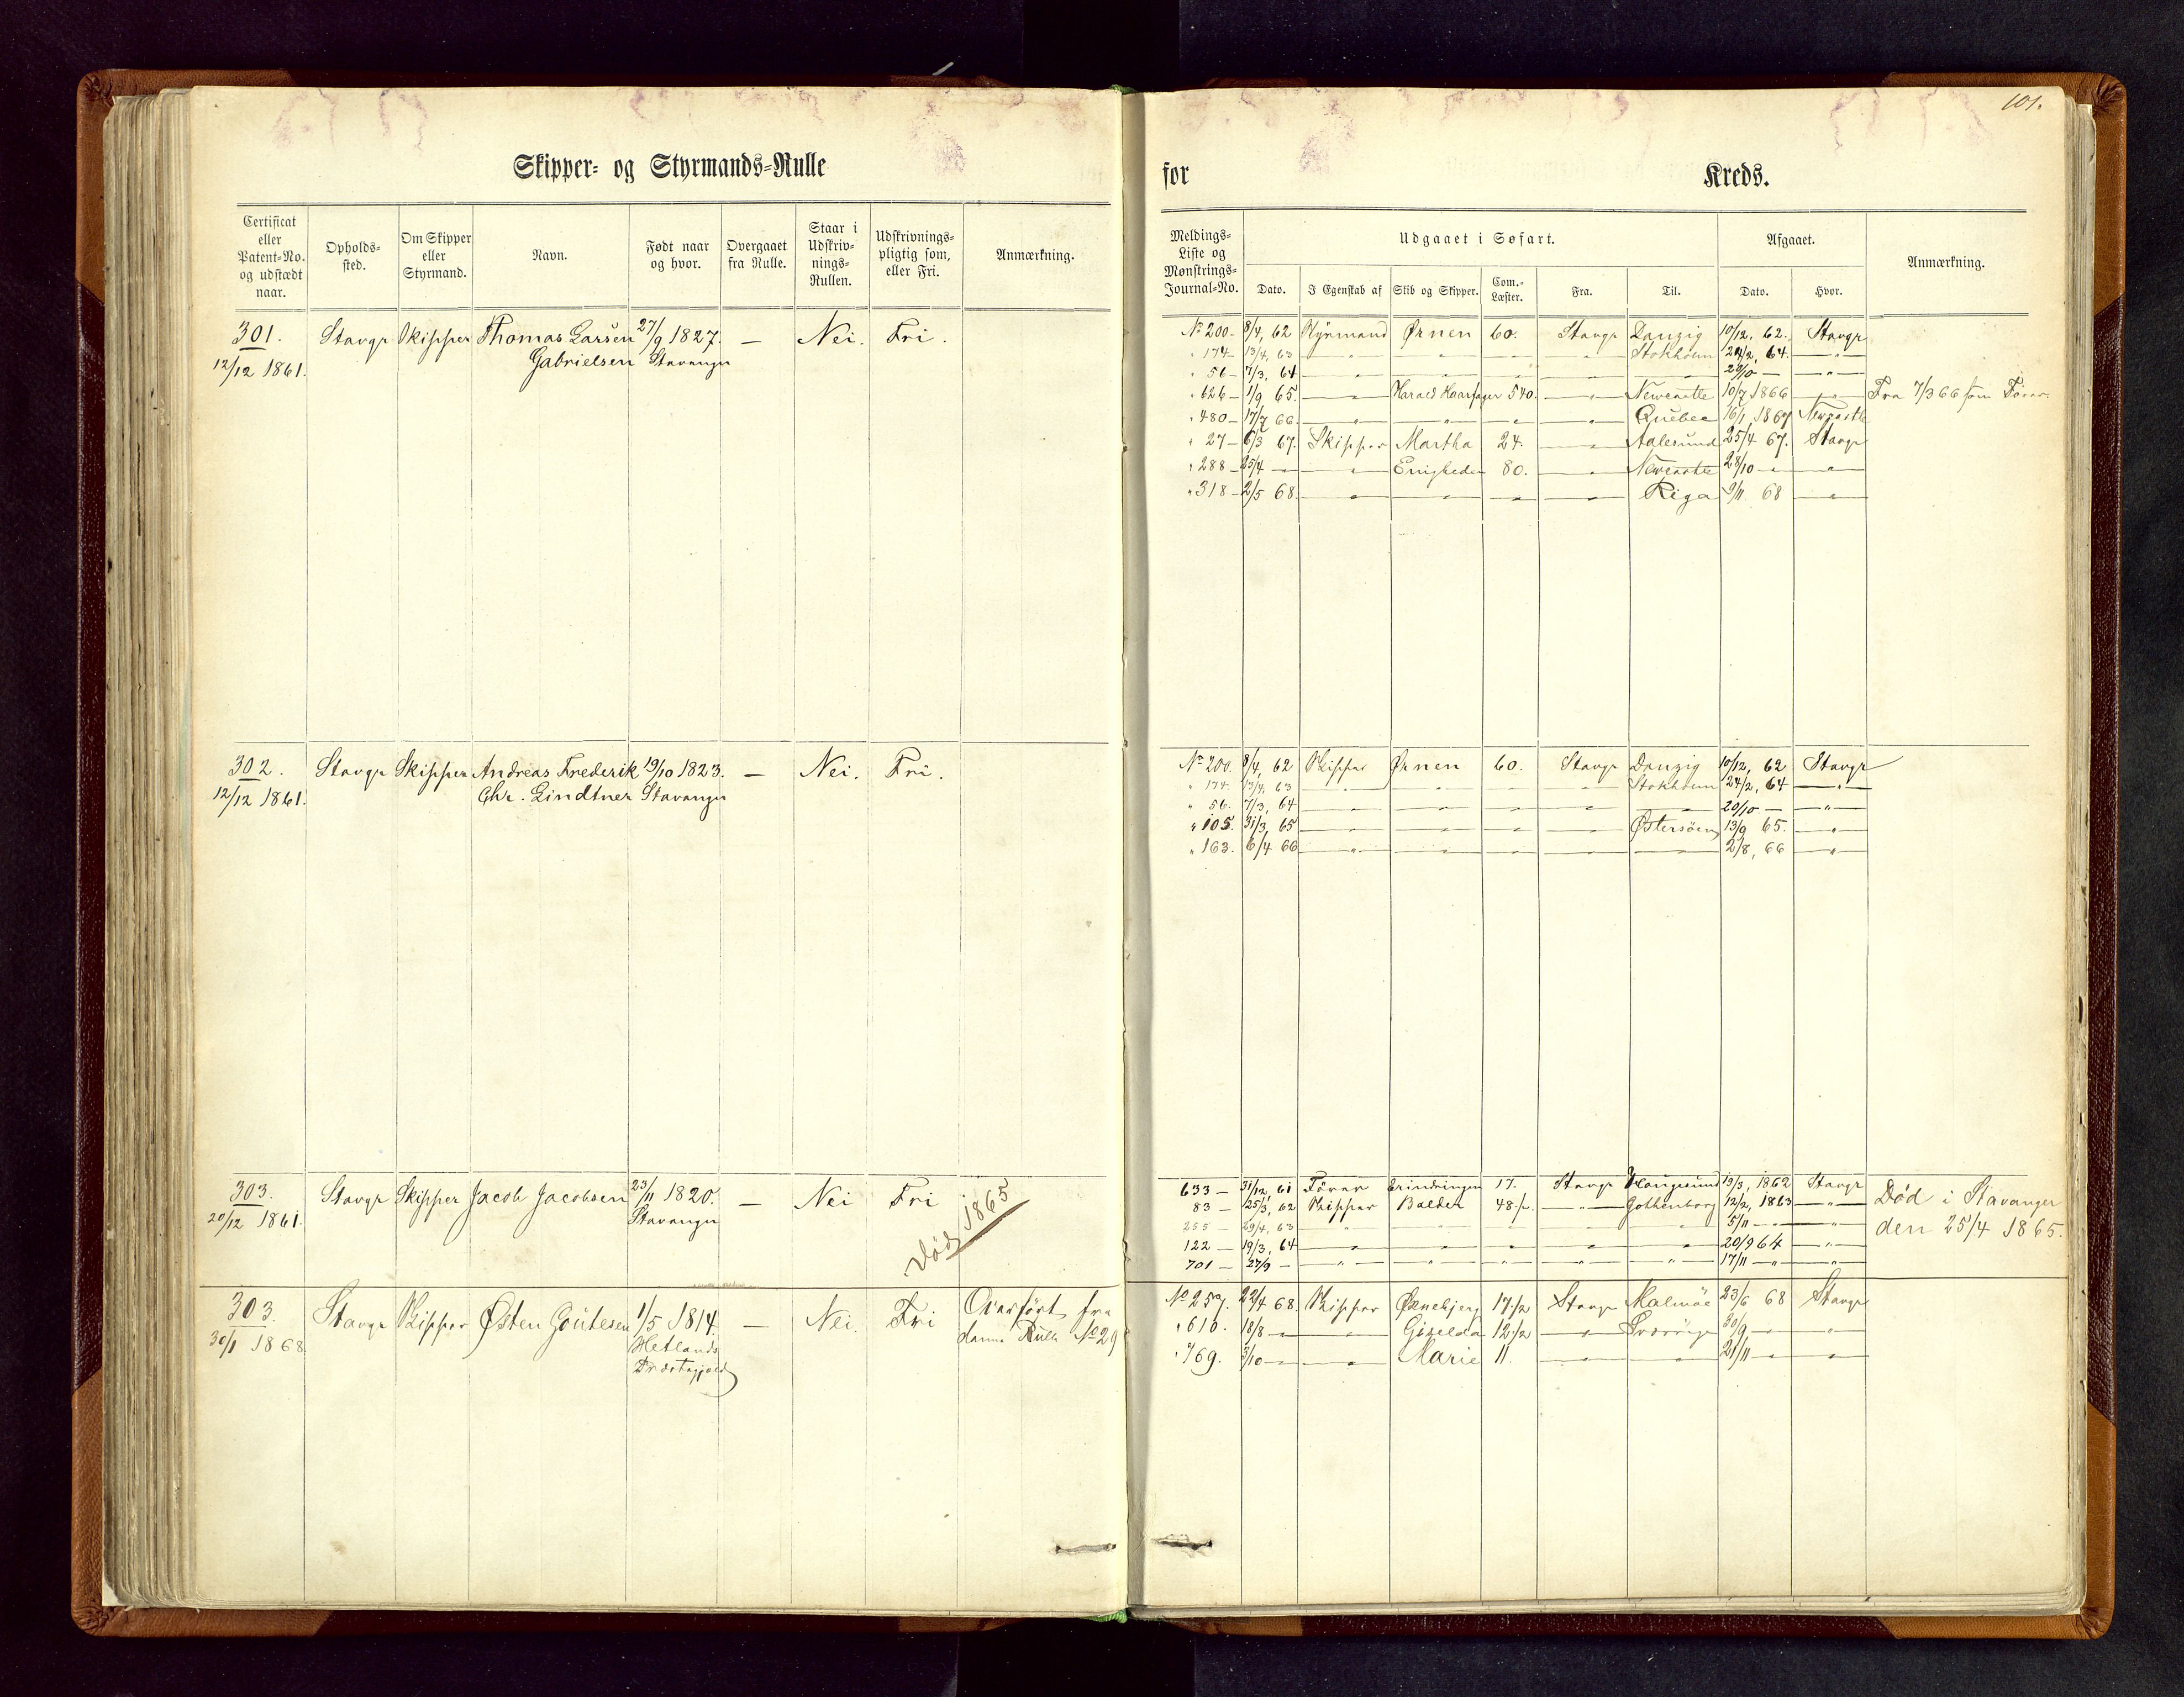 101.
Skipper- og Styrmands-Rulle
for Kreds.
Certificat eller Patent-No. og udstædt naar. | Opholds-sted. | Om Skipper eller Styrmand. | Navn. | Født naar og hvor. | Overgaaet fra Rulle. | Staar i Udskriv-nings-Rullen. | Udskrivnings-pligtig som, eller Fri. | Anmærkning.
Meldings-Liste og Mønstrings-Journal-No. | Udgaaet i Søfart. | Afgaaet. | Anmærkning.
Dato. | I Egenskab af | Skib og Skipper. | Com.-Læster. | Fra. | Til. | Dato. | Hvor.
301. Stavgr Skipper Thomas Larsen 27/9 1827. — Nei. Fri.
12/12 1861. Gabrielsen Stavanger
No 200- 8/4, 62 Styrmand Ørnen 60. Stavgr Danzig 10/12, 62. Stavgr
" 174- 13/4, 63 " " " " Stokholm 24/2, 64 "
" 56- 7/3, 64 " " " " "
" 626- 1/9 65. " Harald Haarfager 540. " Newcastle 10/7 1866 " Fra 7/3 66 som Fører
" 480- 17/7 66. " " " " Quebec 16/1, 1867 Newcastle
" 27- 6/3 67. Skipper Martha 24. " Aalesund 25/4 67. Stavgr
" 288- 25/4 - " Enigheden 80. " Newcastle 28/10 - "
" 318- 2/5 68. " " " " Riga 9/11 68 "
302. Stavgr Skipper Andreas Frederik 19/10 1823. — Nei. Fri.
12/12 1861. Chr. Lindtner Stavanger
No 200. 8/4, 62 Skipper Ørnen 60. Stavgr Danzig 10/12, 62 Stavgr
" 174. 13/4, 63 " " " " Stokholm 24/2, 64 "
" 56. 7/3, 64 " " " " — 20/10 — "
" 105. 31/3, 65 " " " " Østersöen 13/9 65. "
" 163. 6/4 66 " " " " — 2/8, 66 "
303. Stavgr Skipper Jacob Jacobsen 23/11 1820. — Nei Fri
20/12 1861. Stavanger
Död 1865
633 — 31/12, 61 Förer Erindringen 17. Stavgr Haugesund 13/3, 1862 Stavgr
83 — 25/3, 62 Skipper Balder 48 1/2. " Gothenborg 12/2, 1863 "
255 — 29/4, 63 " " " " " 5/11 — "
122 — 19/3, 64 " " " " " 20/9 64 "
701 — 27/9 — " " " " " 17/11 — "
Död i Stavanger
den 25/4 1865.
303. Stavgr Skipper Østen Goutesen 1/5 1814. — Nei. Fri Overfört fra
30/1 1868 Hetlands denne Rulle No 29
Præstegjeld
No 259. 22/4 68. Skipper Ørnebjerg 17 1/2 Stavgr Malmöe 23/6 68 Stavgr
" 610. 18/8 " " Giselda 12 1/2 " 30/9 " "
" 769. 3/10 " " Marie 11. " " 21/11 " "